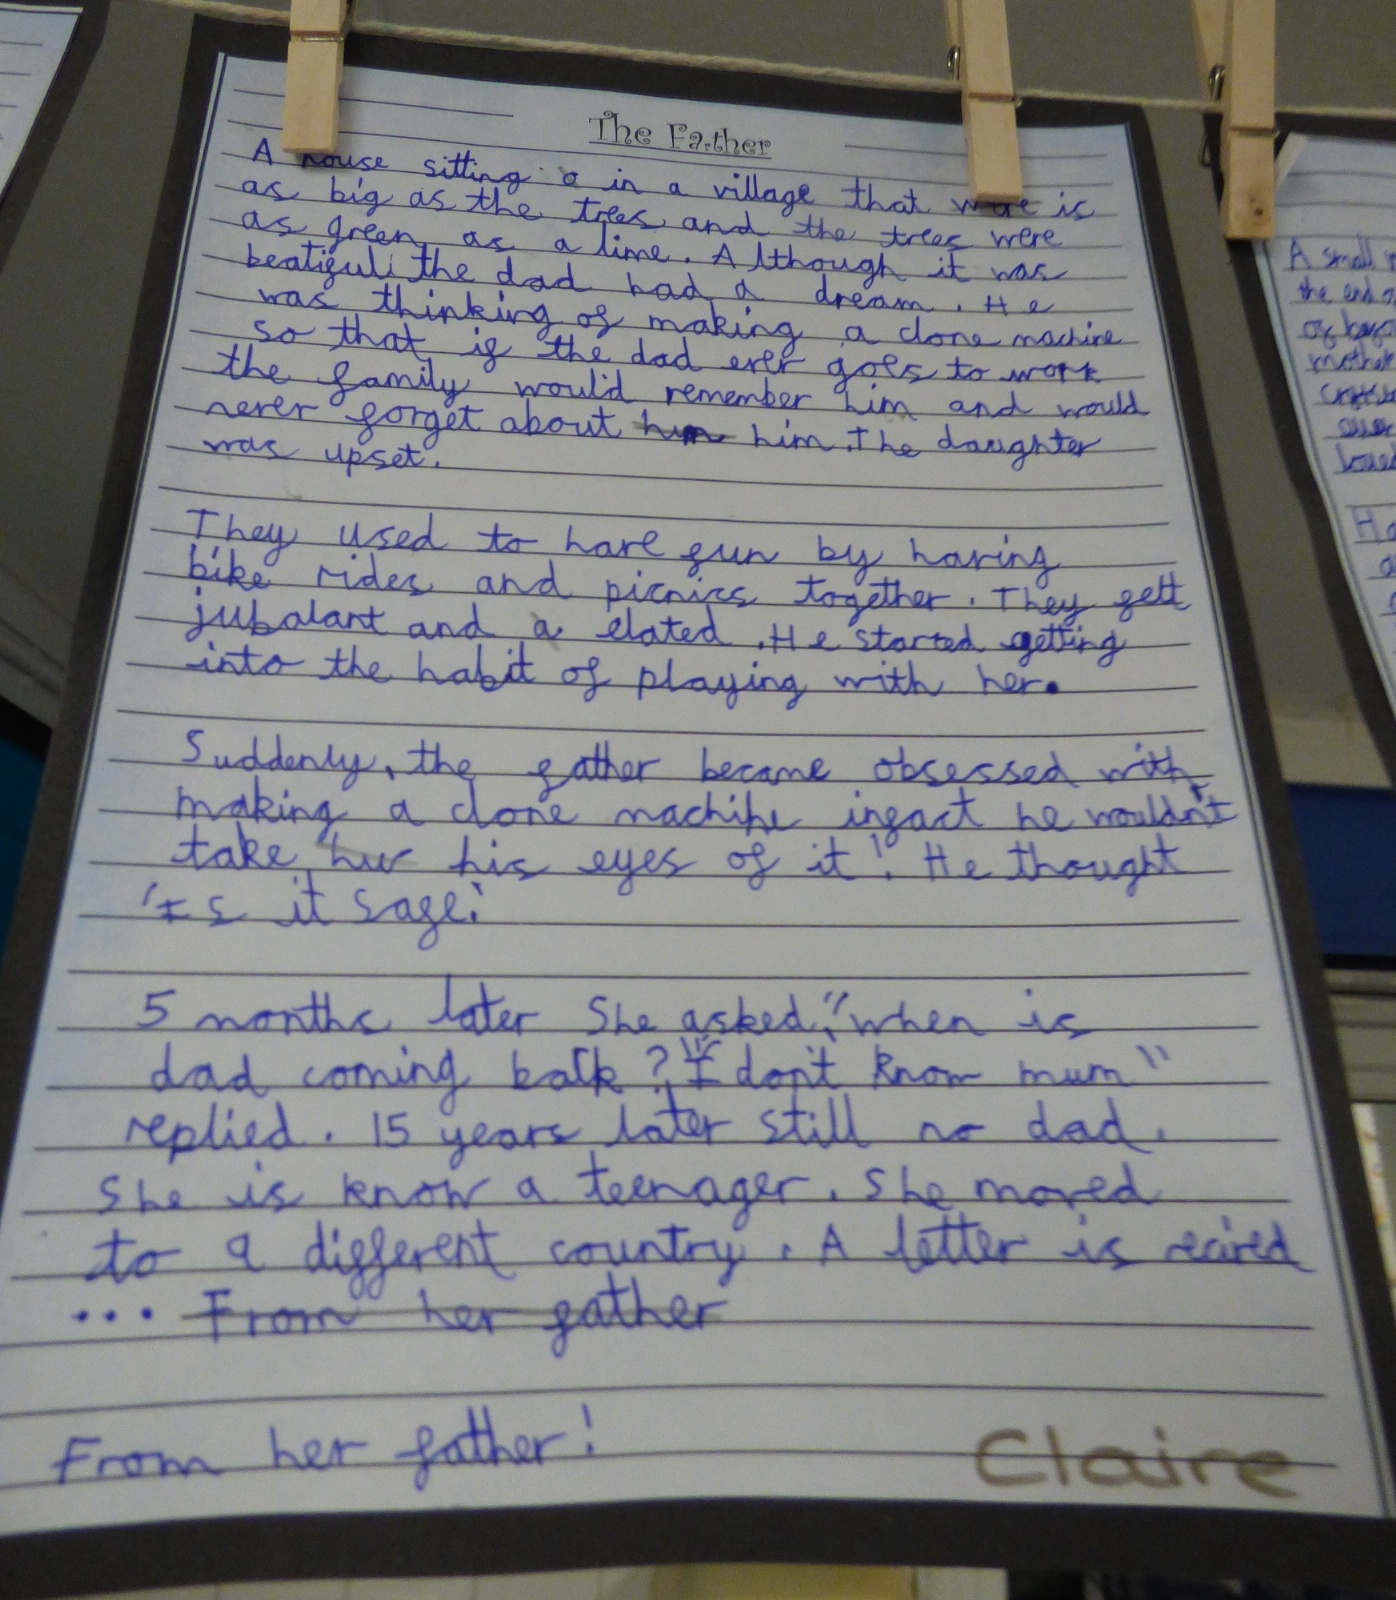 The Father
A house sitting o in a village that were is
as big as the trees and the trees were
as green as a lime. Although it was
beatifuli the dad had a dream. He
was thinking of making a clone machine
so that if the dad ever goes to work
the family would remember him and would
never forget about him him. The daughter
was upset.
They used to have fun by having
bike rides and picnics together. They felt
jubalant and a elated. He started getting
into the habit of playing with her.
Suddenly, the father became obsessed with
making a clone machine infact he wouldn't
take his eyes of it! He thought
'Is it safe.'
5 months later She asked, "when is
dad coming back? "I don't know mum"
replied. 15 years later still no dad.
She is know a teenager. She moved
to a different country. A letter is recived
... From her father
From her father!
Claire
A small
the end o
mother
loved
Ho